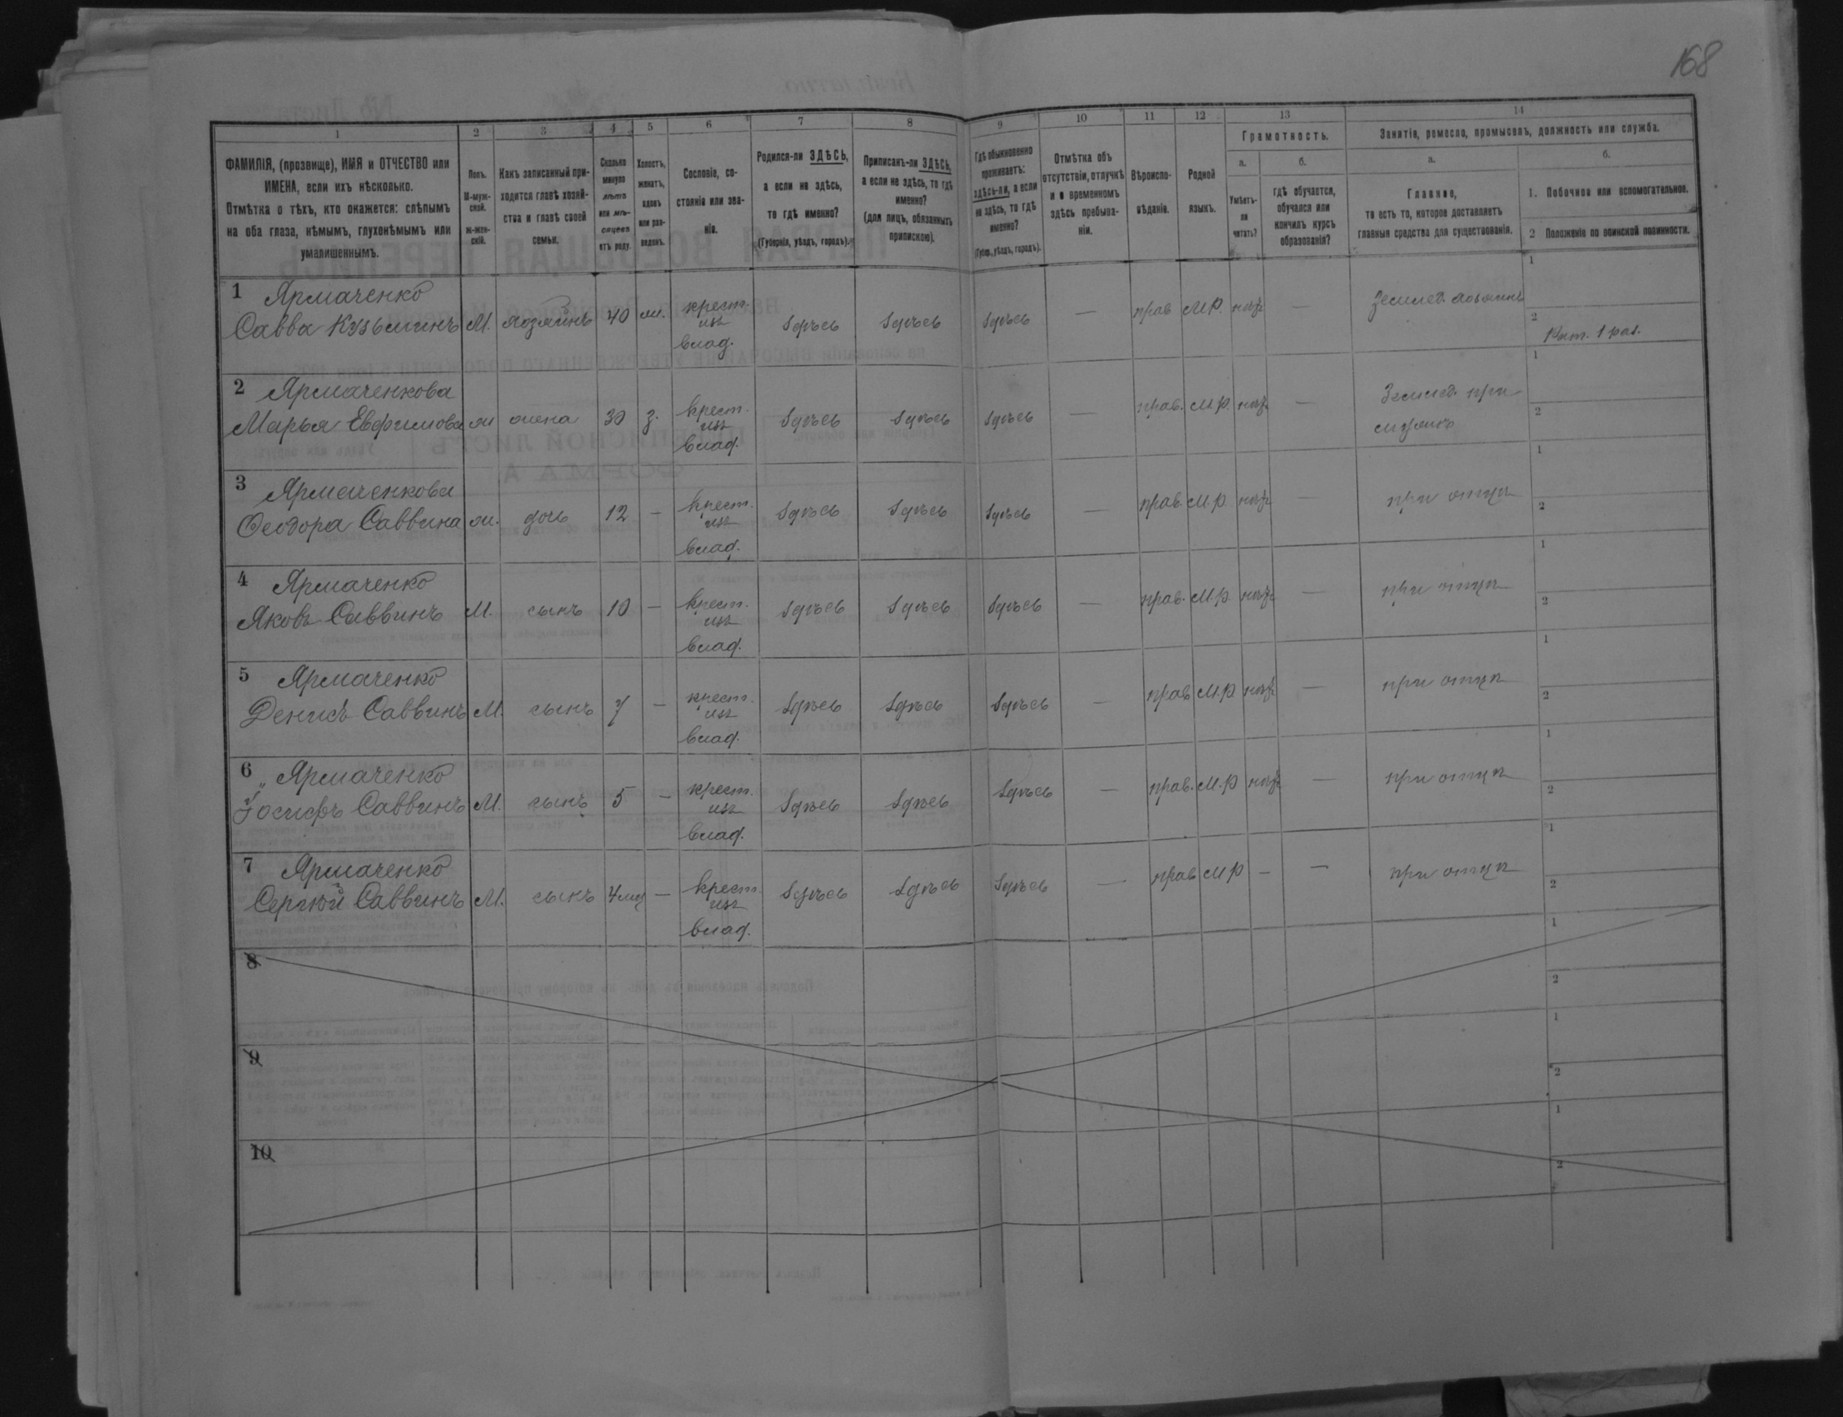 168
1 2 3 4 5 6 7 8 9 10 11 12 13 14
ФАМИЛІЯ, (прозвище), ИМЯ и ОТЧЕСТВО или
ИМЕНА, если ихъ нѣсколько.
Отмѣтка о тѣхъ, кто окажется: слѣпымъ
на оба глаза, нѣмымъ, глухонѣмымъ или
умалишеннымъ.
Полъ.
М-муж-
ской.
ж-жен-
скій.
Какъ записанный при-
ходится главѣ хозяй-
ства и главѣ своей
семьи.
Сколько
минуло
лѣтъ
или мѣ-
сяцевъ
отъ роду.
Холостъ,
женатъ,
вдовъ
или раз-
веденъ.
Сословіе, со-
стояніе или зва-
ніе.
Родился-ли ЗДѢСЬ,
а если не здѣсь,
то гдѣ именно?
(Губернія, уѣздъ, городъ).
Приписанъ-ли ЗДѢСЬ,
а если не здѣсь, то гдѣ
именно?
(для лицъ, обязанныхъ
припискою).
Гдѣ обыкновенно
проживаетъ:
здѣсь-ли, а если
не здѣсь, то гдѣ
именно?
(Губер., уѣздъ, городъ).
Отмѣтка объ
отсутствіи, отлучкѣ
и о временномъ
здѣсь пребыва-
ніи.
Вѣроиспо-
вѣданіе.
Родной
языкъ.
Грамотность.
а.
Умѣетъ-
ли
читать?
б.
гдѣ обучается,
обучался или
кончилъ курсъ
образованія?
Занятіе, ремесло, промыселъ, должность или служба.
а.
Главное,
то есть то, которое доставляетъ
главныя средства для существованія.
б.
1. Побочное или вспомогательное.
2 Положеніе по воинской повинности.
1 Ярмаченко
Савва Кузьминъ М. хозяинъ 40 ж. крест. изъ влад. здѣсь здѣсь здѣсь — прав М.Р. — Землед. хозяинъ
1
2 Рат. 1 раз.
2 Ярмаченкова
Марья Евфимова ж жена 30 з. крест. изъ влад. здѣсь здѣсь здѣсь — прав. М.Р. — Землед. при мужѣ
1
2
3 Ярмаченкова
Ѳеодора Саввина ж. дочь 12 — крест. изъ влад. здѣсь здѣсь здѣсь — прав. М.Р. — при отцѣ
1
2
4 Ярмаченко
Яковъ Саввинъ М. сынъ 10 — крест. изъ влад. здѣсь здѣсь здѣсь — прав. М.Р. — при отцѣ
1
2
5 Ярмаченко
Денисъ Саввинъ М. сынъ 7 — крест. изъ влад. здѣсь здѣсь здѣсь — прав. М.Р. — при отцѣ
1
2
6 Ярмаченко
Іосифъ Саввинъ М. сынъ 5 — крест. изъ влад. здѣсь здѣсь здѣсь — прав. М.Р. — при отцѣ
1
2
7 Ярмаченко
Сергѣй Саввинъ М. сынъ 4 мѣс — крест. изъ влад. здѣсь здѣсь здѣсь — прав М Р — — при отцѣ
1
2
8
1
2
9
1
2
10
1
2